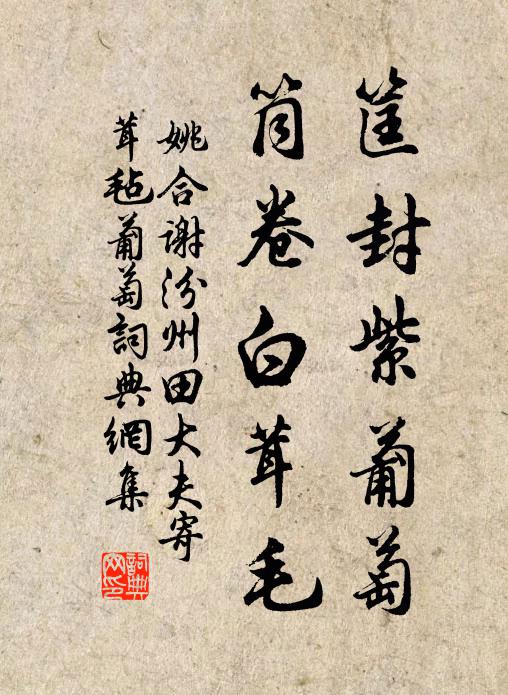 筐封紫葡萄
筒卷白茸毛
姚合谢汾州田大夫寄
茸毡葡萄詞典網集
詞典網印